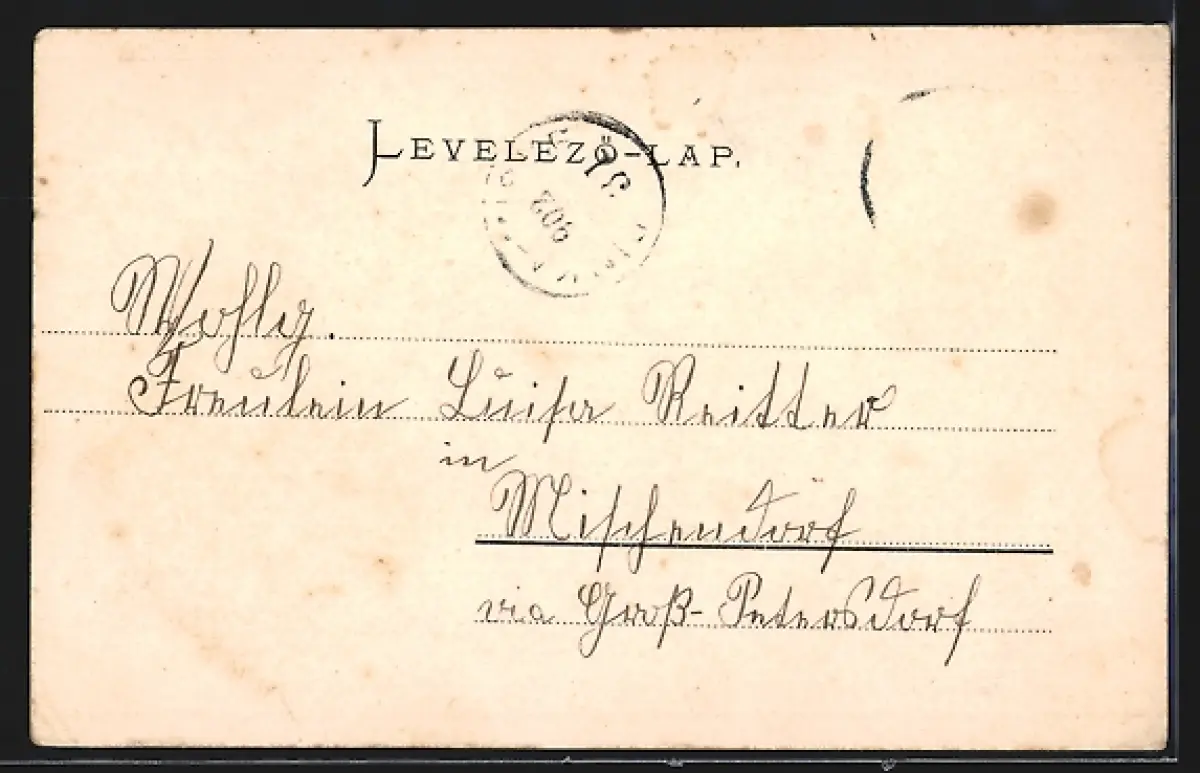 LEVELEZŐ-LAP.
902
Wohlg.
Fräulein Luise Reitter
in
Mischendorf
via Groß-Petersdorf